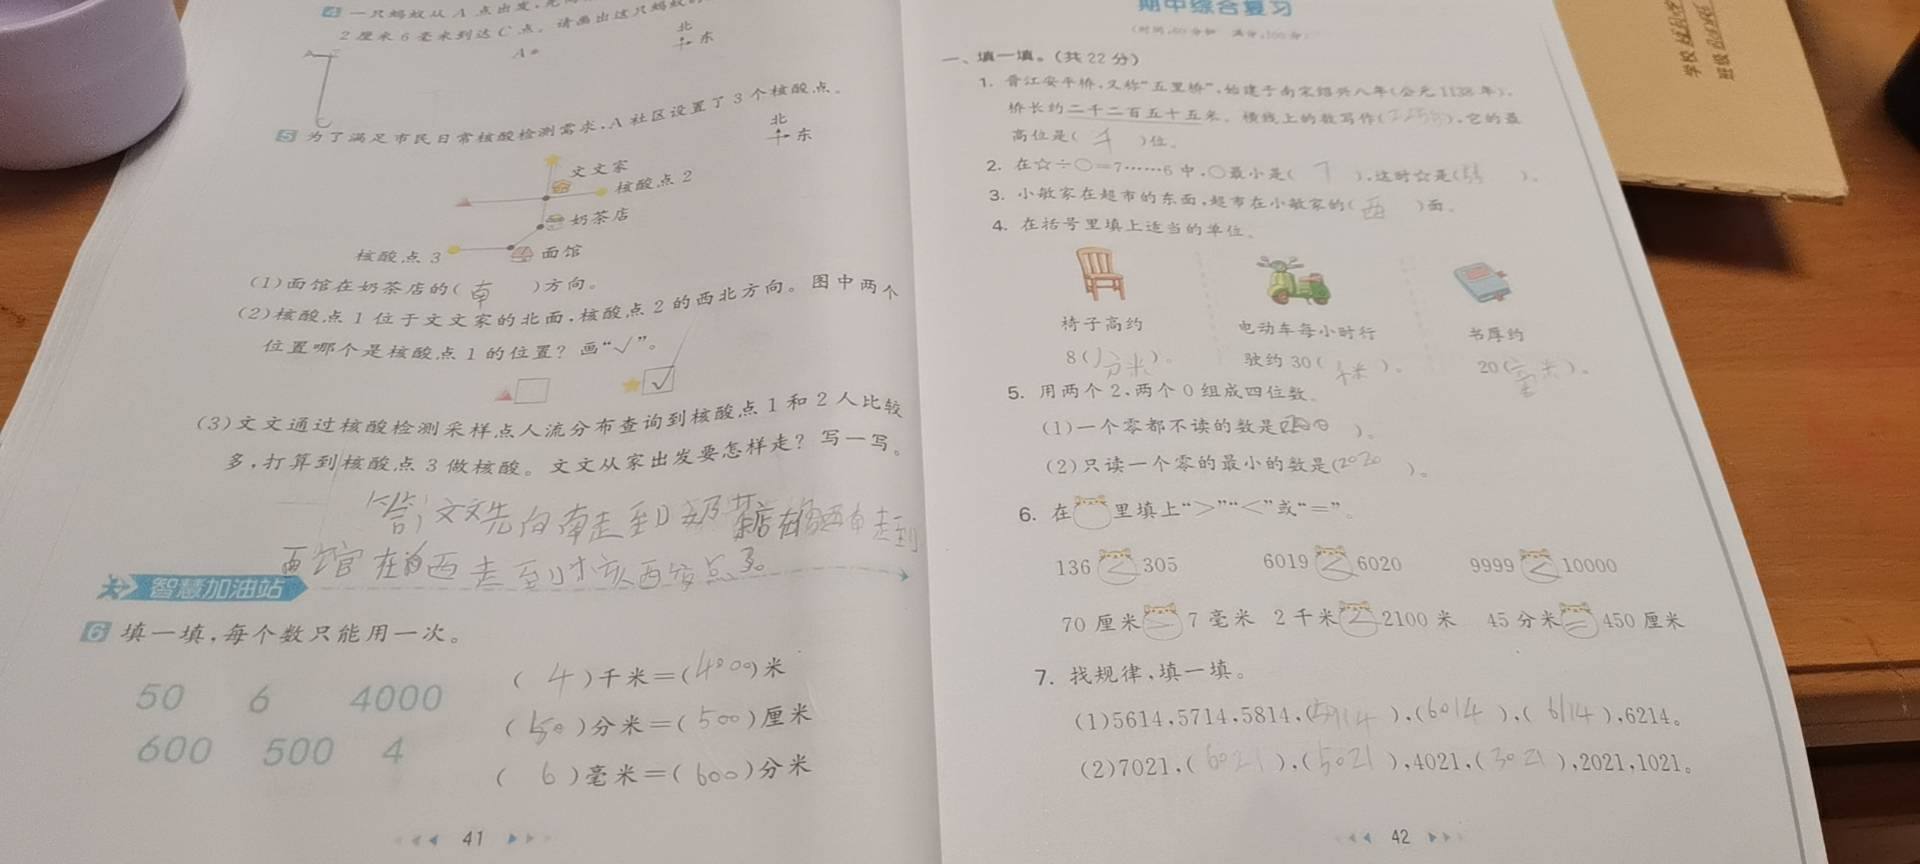 4 一只蚂蚁从A点出发,先向
2厘米6毫米到达C点。请画出这只蚂蚁的
A
北
东
5 为了满足市民日常核酸检测需求,A社区设置了3个核酸点。
北
东
文文家
核酸点2
奶茶店
核酸点3
面馆
(1)面馆在奶茶店的(南)方向。
(2)核酸点1位于文文家的北面,核酸点2的西北方向。图中两个
位置哪个是核酸点1的位置?画“√”。
√
(3)文文通过核酸检测采样点人流分布查询到核酸点1和2人比较
多,打算到核酸点3做核酸。文文从家出发要怎样走?写一写。
答;文文先向南走到奶茶店在向西南走到
面馆在向西走到核酸点3。
智慧加油站
6 填一填,每个数只能用一次。
50 6 4000
600 500 4
(4)千米=(4000)米
(50)分米=(500)厘米
(6)毫米=(600)分米
41
期中综合复习
(时间:60分钟 满分:100分)
一、填一填。(共22分)
1. 晋江安平桥,又称“五里桥”,始建于南宋绍兴八年(公元1138年)。
桥长约二千二百五十五米。横线上的数写作(2255),它的最
高位是(千)位。
2. 在☆÷○=7……6中,○最小是(7),这时☆是(55)。
3. 小敏家在超市的东面,超市在小敏家的(西)面。
4. 在括号里填上适当的单位。
椅子高约
8(分米)。
电动车每小时行
驶约30(千米)。
书厚约
20(毫米)。
5. 用两个2,两个0组成四位数。
(1)一个零都不读的数是(2200)。
(2)只读一个零的最小的数是(2020)。
6. 在 里填上“>”“<”或“=”。
136<305 6019<6020 9999<10000
70厘米>7毫米 2千米<2100米 45分米=450厘米
7. 找规律,填一填。
(1)5614,5714,5814,(5914),(6014),(6114),6214。
(2)7021,(6021),(5021),4021,(3021),2021,1021。
42
学校
班级